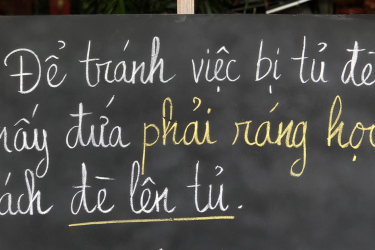 Để tránh việc bị tủ đè
mấy đứa phải ráng học
sách đề lên tủ.